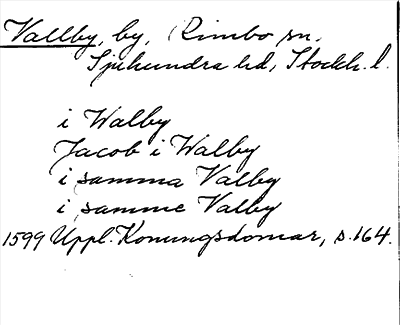 Vallby, by, Rimbo sn,
Sjuhundra hd, Stockh. l.
i Walby
Jacob i Walby
i samma Valby
i samme Valby
1599 Uppl. Konungsdomar, s. 164.